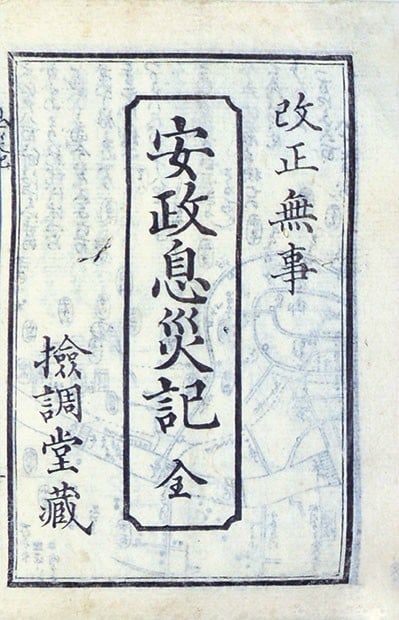 改正無事
安政息災記 全
撿調堂藏